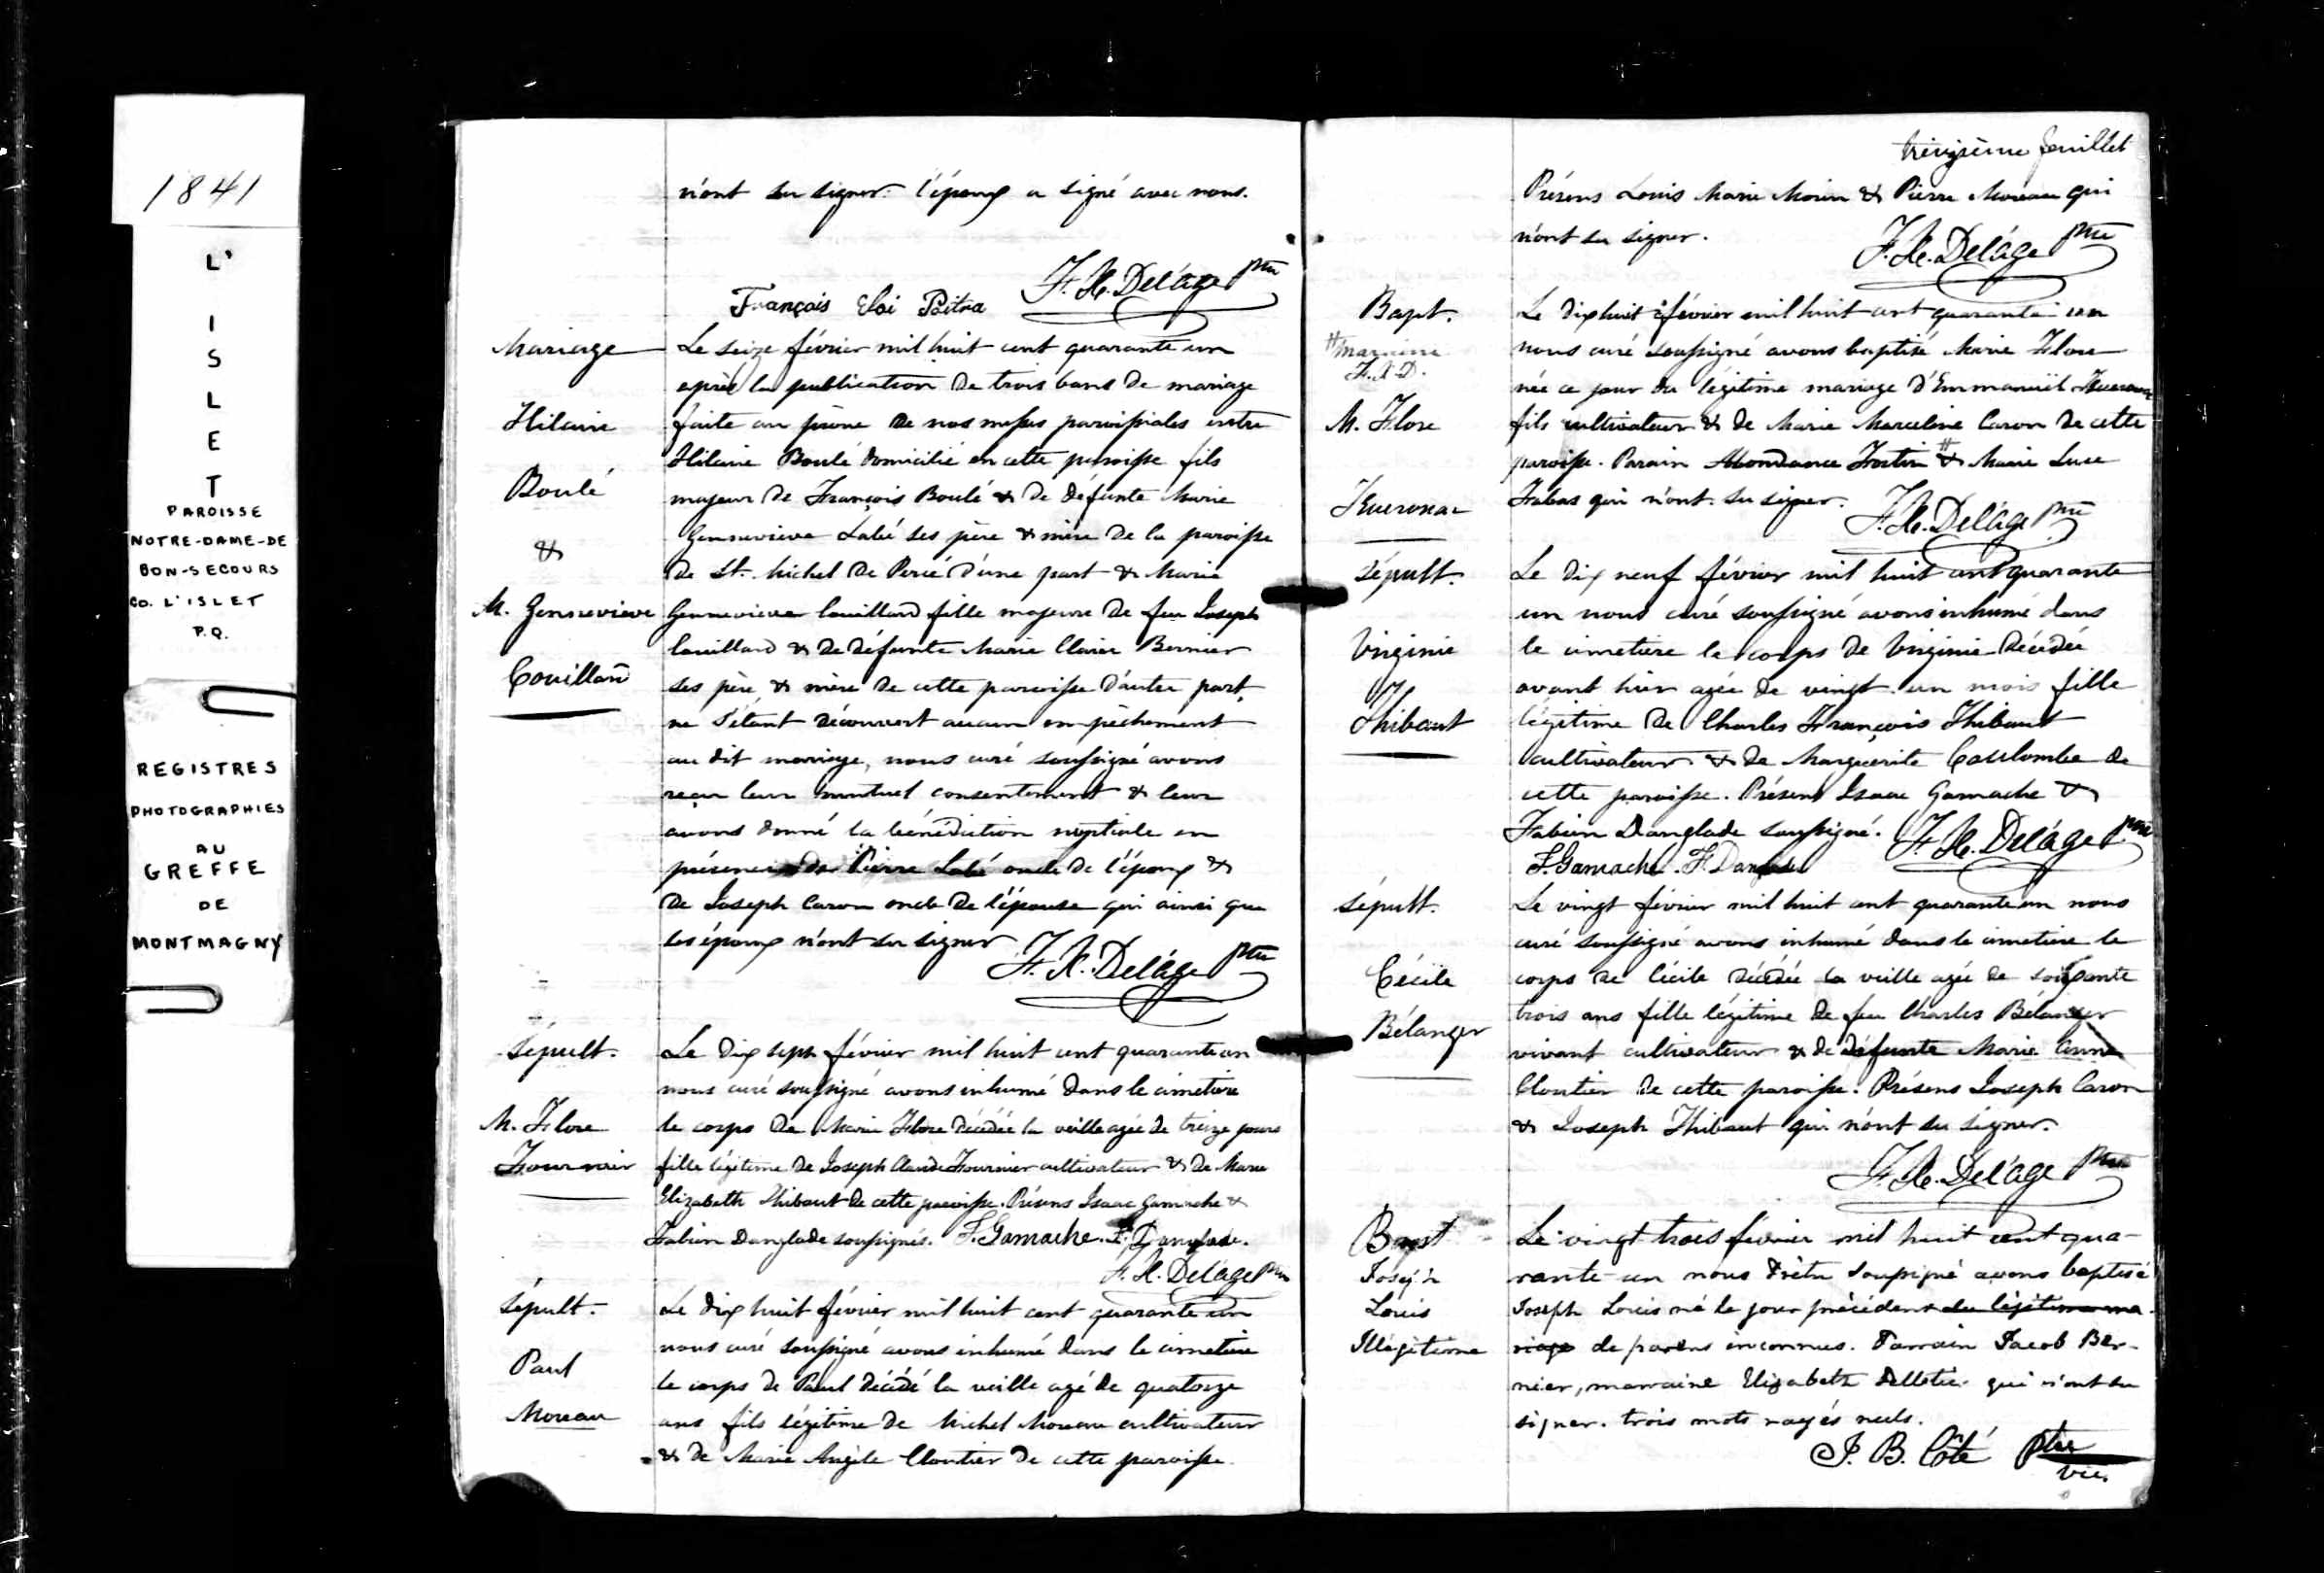 1841
L'
I
S
L
E
T
PAROISSE
NOTRE-DAME-DE
BON-SECOURS
CO. L'ISLET
P.Q.
REGISTRES
PHOTOGRAPHIES
AU
GREFFE
DE
MONTMAGNY
n'ont su signer. l'époux a signé avec nous.
François Eloi Poitra F. X. Delâge Ptre
Mariage
Hilaire
Boulé
&
M. Genevieve
Couillard
Le seize février mil huit cent quarante un
après la publication de trois bans de mariage
faite au prône de nos messes paroissiales entre
Hilaire Boulé domicilié en cette paroisse fils
majeur de François Boulé & de défunte Marie
Genevieve Labé ses père & mère de la paroisse
de St. Michel de Percé d'une part & Marie
Genevieve Couillard fille majeure de feu Joseph
Couillard & de défunte Marie Claire Bernier
ses père & mère de cette paroisse d'autre part,
ne s'étant découvert aucun empêchement
au dit mariage, nous curé soussigné avons
reçu leur mutuel consentement & leur
avons donné la bénédiction nuptiale en
présence de Pierre Labé oncle de l'époux &
de Joseph Caron oncle de l'épouse qui ainsi que
les époux n'ont su signer F. X. Delâge Ptre
Sépult.
M. Flore
Fournier
Le dix sept février mil huit cent quarante un
nous curé soussigné avons inhumé dans le cimetière
le corps de Marie Flore décédée la veille agée de treize jours
fille légitime de Joseph Claude Fournier cultivateur & de Marie
Elizabeth Thibaut de cette paroisse. Présens Isaac Gamache &
Fabien Danglade soussignés. I. Gamache. F. Danglade.
F. X. Delâge Ptre
Sépult.
Paul
Moreau
Le dix huit février mil huit cent quarante un
nous curé soussigné avons inhumé dans le cimetière
le corps de Paul décédé la veille agé de quatorze
ans fils légitime de Michel Moreau cultivateur
& de Marie Angèle Cloutier de cette paroisse.
treizième feuillet
Présens Louis Marie Morin & Pierre Moreau qui
n'ont su signer. F. X. Delâge Ptre
Bapt.
# marraine
F. X. D.
M. Flore
Le dix huit février mil huit cent quarante un
nous curé soussigné avons baptisé Marie Flore
née ce jour du légitime mariage d'Emmanuël
fils cultivateur & de Marie Marceline Caron de cette
paroisse. Parain Abondance Fortin # & Marie Luce
qui n'ont su signer. F. X. Delâge Ptre
Sépult.
Virginie
Thibaut
Le dix neuf février mil huit cent quarante
un nous curé soussigné avons inhumé dans
le cimetière le corps de Virginie décédée
avant hier agée de vingt un mois fille
légitime de Charles François Thibaut
cultivateur & de Marguerite Coulombe de
cette paroisse. Présens Isaac Gamache &
Fabien Danglade soussigné. F. X. Delâge Ptre
I. Gamache. F. Danglade
Sépult.
Cécile
Bélanger
Le vingt février mil huit cent quarante un nous
curé soussigné avons inhumé dans le cimetière le
corps de Cécile décédée la veille agée de soixante
trois ans fille légitime de feu Charles Bélanger
vivant cultivateur & de défunte Marie Anne
Cloutier de cette paroisse. Présens Joseph Caron
& Joseph Thibaut qui n'ont su signer.
F. X. Delâge Ptre
Bapt
Joseph
Louis
Illégitime
Le vingt trois février mil huit cent qua-
rante-un nous Prêtre soussigné avons baptisé
Joseph Louis né le jour précédent du légitime ma-
riage de parens inconnus. Parrain Jacob Ber-
nier, marraine Elizabeth Pelletier qui n'ont su
signer. trois mots rayés nuls.
J. B. Côté Ptre
vic.